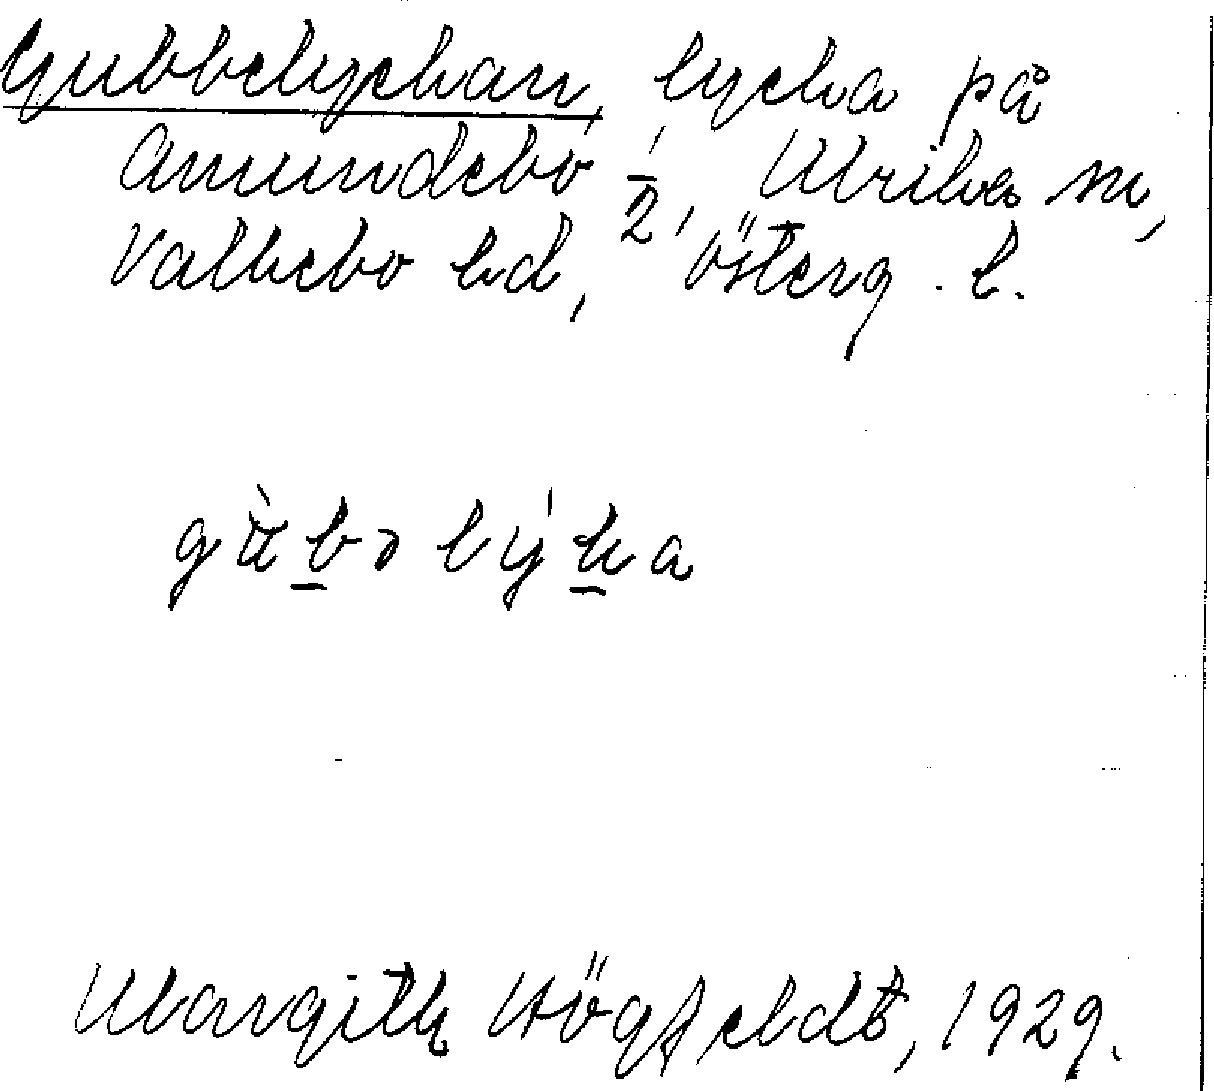 Gubbelyckan, lycka på
Amundebo 1/2, Ulrika sn,
Valkebo hd, Österg. l.
gùbəlýka
Margith Högfeldt, 1929.